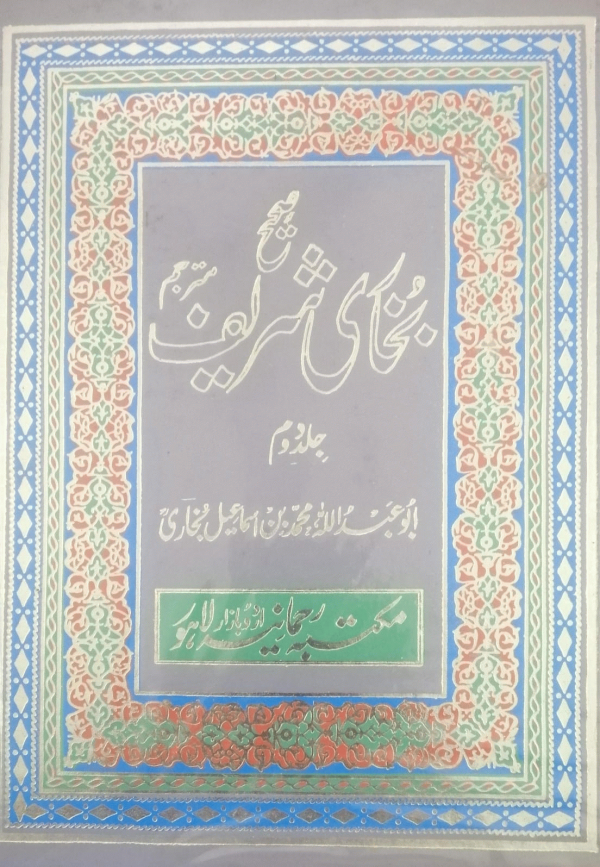 صحیح
بُخاری شریف مترجم
جِلد دوم
ابُو عبدُ اللہ محمّد بِن اسماعیل بُخاریؒ
مکتبہ رحمانیہ اردو بازار لاہور